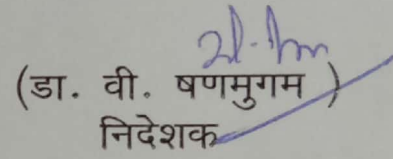 (डा. वी. षणमुगम )
निदेशक